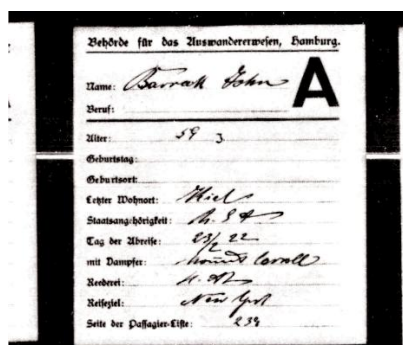 Behörde für das Auswandererwesen, Hamburg.
A
Name: Barrack John
Beruf:
Alter: 59 3
Geburtstag:
Geburtsort:
Letzter Wohnort: Kiel
Staatsangehörigkeit: U. S A
Tag der Abreise: 23/2 22
mit Dampfer: Mount Carroll
Reederei:
Reiseziel: New York
Seite der Passagier-Liste: 239